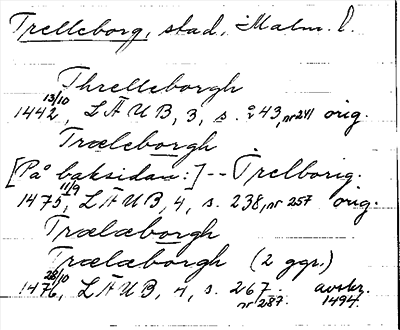 Trelleborg, stad, Malm. l.
Threlleborgh
1442 13/10, LÄUB, 3, s. 243, nr 241 orig.
Træleborgh
[På baksidan:] -- Trelborig.
1475 11/9, LÄUB, 4, s. 238, nr 257 orig.
Trælæborgh
Trælæborgh (2 ggr.)
1476 28/10, LÄUB, 4, s. 267. nr 287. avskr. 1494.